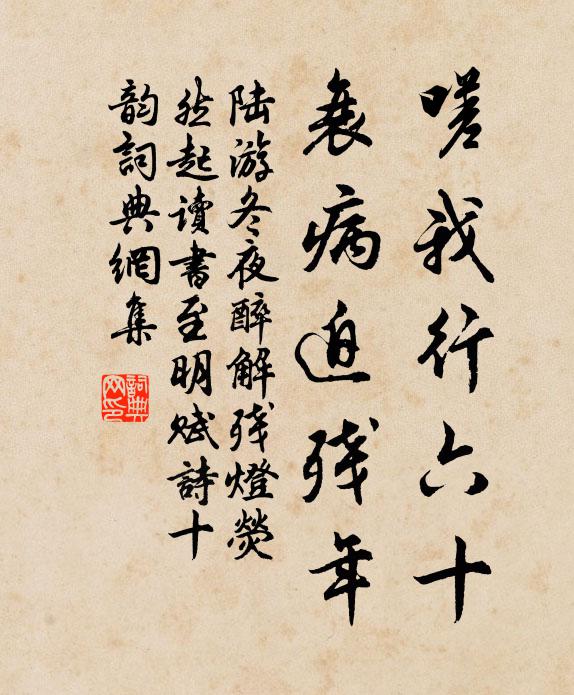 嗟我行六十
衰病迫残年
陆游冬夜醉解残燈熒
然起讀書至明赋詩十
韵詞典網集
詞典网印